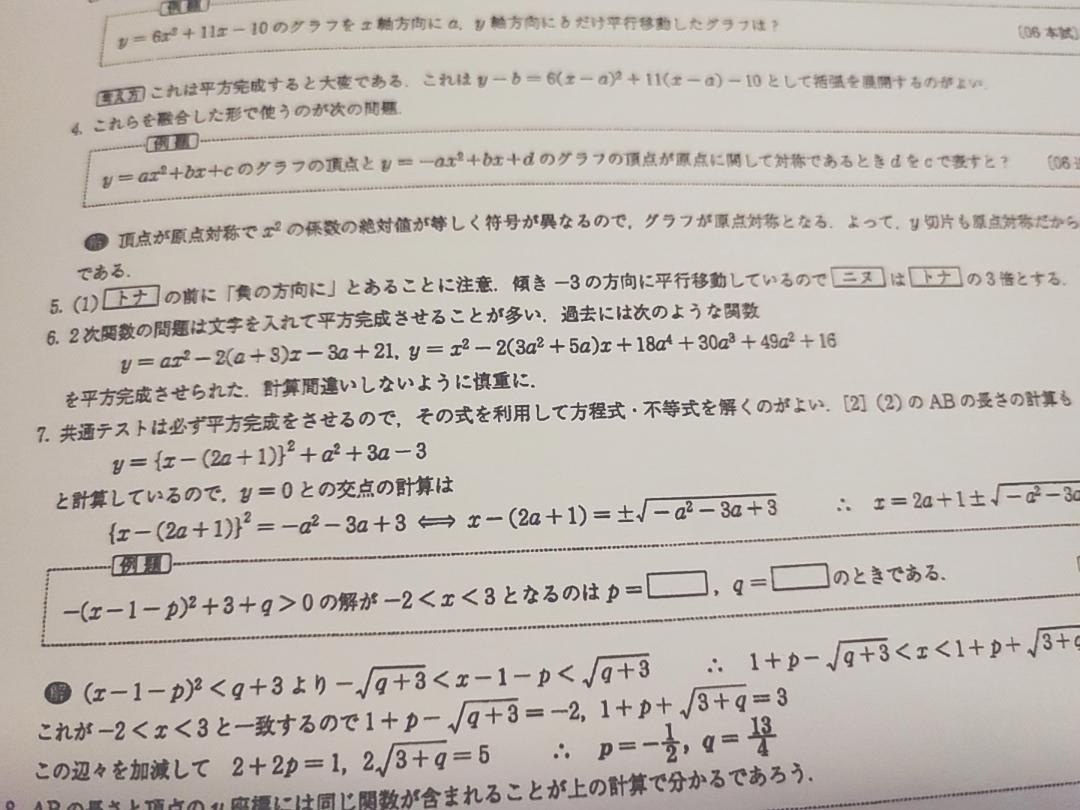 例題
y＝6x²＋11x－10のグラフをx軸方向にa，y軸方向にbだけ平行移動したグラフは？ 〔06本試〕
考え方 これは平方完成すると大変である．これはy－b＝6(x－a)²＋11(x－a)－10として括弧を展開するのがよい．
4. これらを融合した形で使うのが次の問題．
例題
y＝ax²＋bx＋cのグラフの頂点とy＝－ax²＋bx＋dのグラフの頂点が原点に関して対称であるときdをcで表すと？ 〔06
解 頂点が原点対称でx²の係数の絶対値が等しく符号が異なるので，グラフが原点対称となる．よって，y切片も原点対称だから
である．
5. (1) トナ の前に「負の方向に」とあることに注意．傾き－3の方向に平行移動しているので ニヌ は トナ の3倍とする．
6. 2次関数の問題は文字を入れて平方完成させることが多い．過去には次のような関数
y＝ax²－2(a＋3)x－3a＋21, y＝x²－2(3a²＋5a)x＋18a⁴＋30a³＋49a²＋16
を平方完成させられた．計算間違いしないように慎重に．
7. 共通テストは必ず平方完成をさせるので，その式を利用して方程式・不等式を解くのがよい．[2] (2) のABの長さの計算も
y＝{x－(2a＋1)}²＋a²＋3a－3
と計算しているので，y＝0との交点の計算は
{x－(2a＋1)}²＝－a²－3a＋3 ⟺ x－(2a＋1)＝±√－a²－3a＋3 ∴ x＝2a＋1±√－a²－3a
例題
－(x－1－p)²＋3＋q＞0の解が－2＜x＜3となるのはp＝□，q＝□のときである．
解 (x－1－p)²＜q＋3より－√q＋3＜x－1－p＜√q＋3 ∴ 1＋p－√q＋3＜x＜1＋p＋√3＋q
これが－2＜x＜3と一致するので1＋p－√q＋3＝－2, 1＋p＋√3＋q＝3
この辺々を加減して 2＋2p＝1, 2√3＋q＝5 ∴ p＝－1/2, q＝13/4
8. ABの長さと頂点のy座標には同じ関数が含まれることが上の計算で分かるであろう．